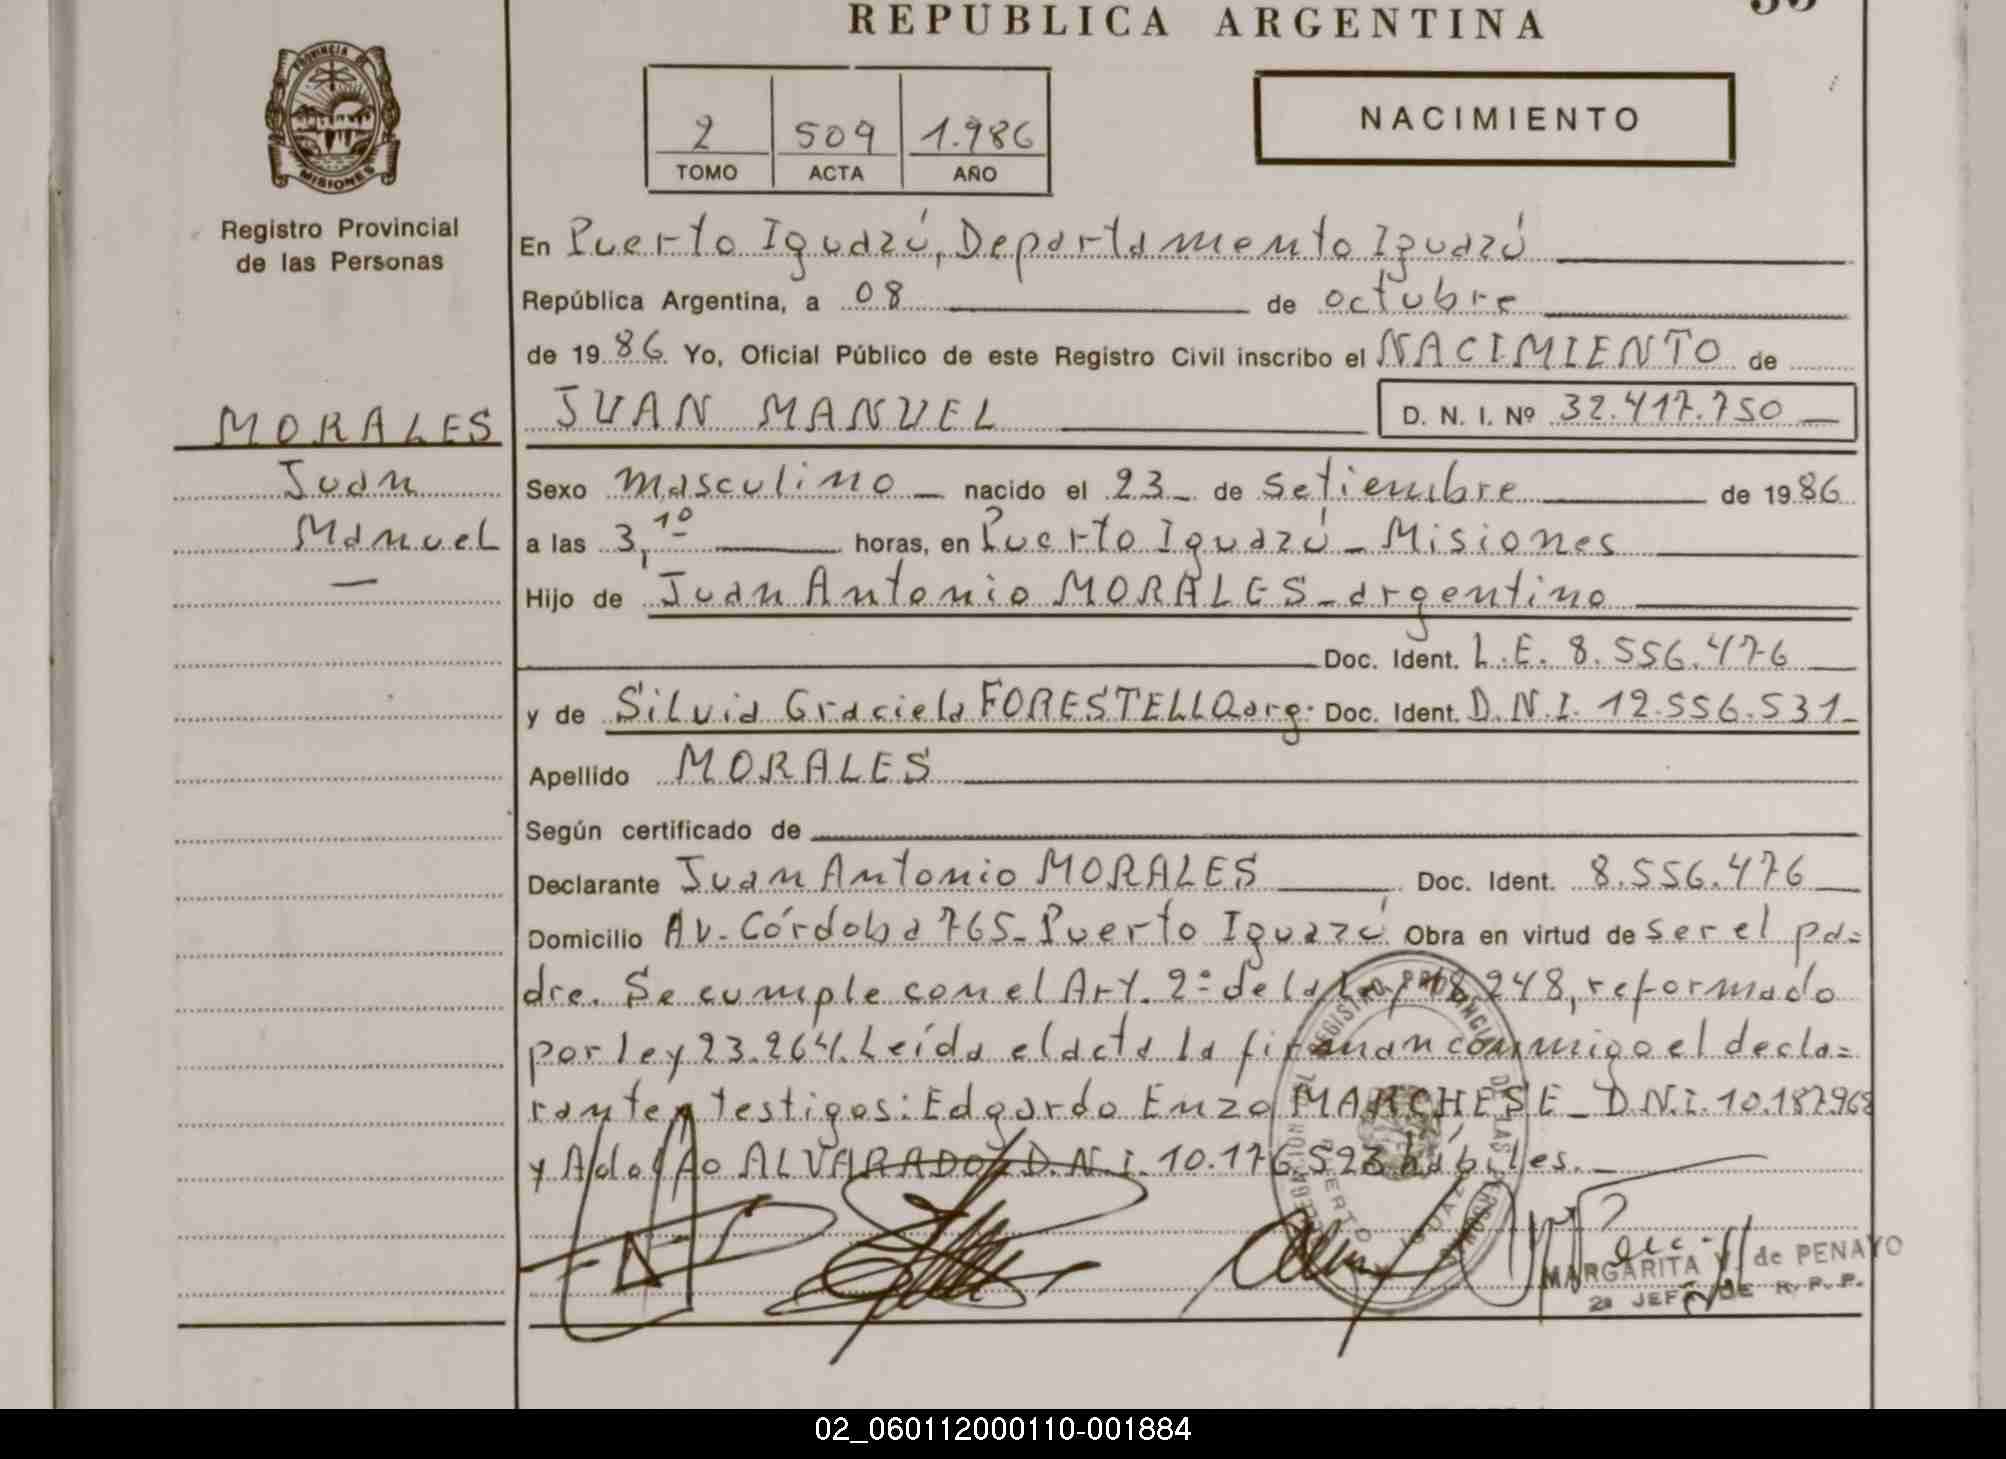 REPUBLICA ARGENTINA
PROVINCIA DE
MISIONES
Registro Provincial
de las Personas
2 509 1.986
TOMO ACTA AÑO
NACIMIENTO
En Puerto Iguazú, Departamento Iguazú
República Argentina, a 08 de octubre
de 19 86 Yo, Oficial Público de este Registro Civil inscribo el NACIMIENTO de
MORALES
Juan
Manuel
JUAN MANUEL D. N. I. Nº 32.417.750
Sexo masculino nacido el 23 de setiembre de 19 86
a las 3,10 horas, en Puerto Iguazú - Misiones
Hijo de Juan Antonio MORALES - argentino
Doc. Ident. L.E. 8.556.476
y de Silvia Graciela FORESTELLO arg. Doc. Ident. D.N.I. 12.556.531
Apellido MORALES
Según certificado de
Declarante Juan Antonio MORALES Doc. Ident. 8.556.476
Domicilio Av. Córdoba 765 - Puerto Iguazú Obra en virtud de ser el pa=
dre. Se cumple con el Art. 2º de la Ley 18.248, reformado
por ley 23.264. Leída el acta la firman conmigo el decla=
rante y testigos: Edgardo Enzo MARCHESE - D.N.I. 10.187.968
y Adolfo ALVARADO, D.N.I. 10.176.523 hábiles.
MARGARITA V. de PENAYO
2a JEFA DE R. P. P.
02_060112000110-001884